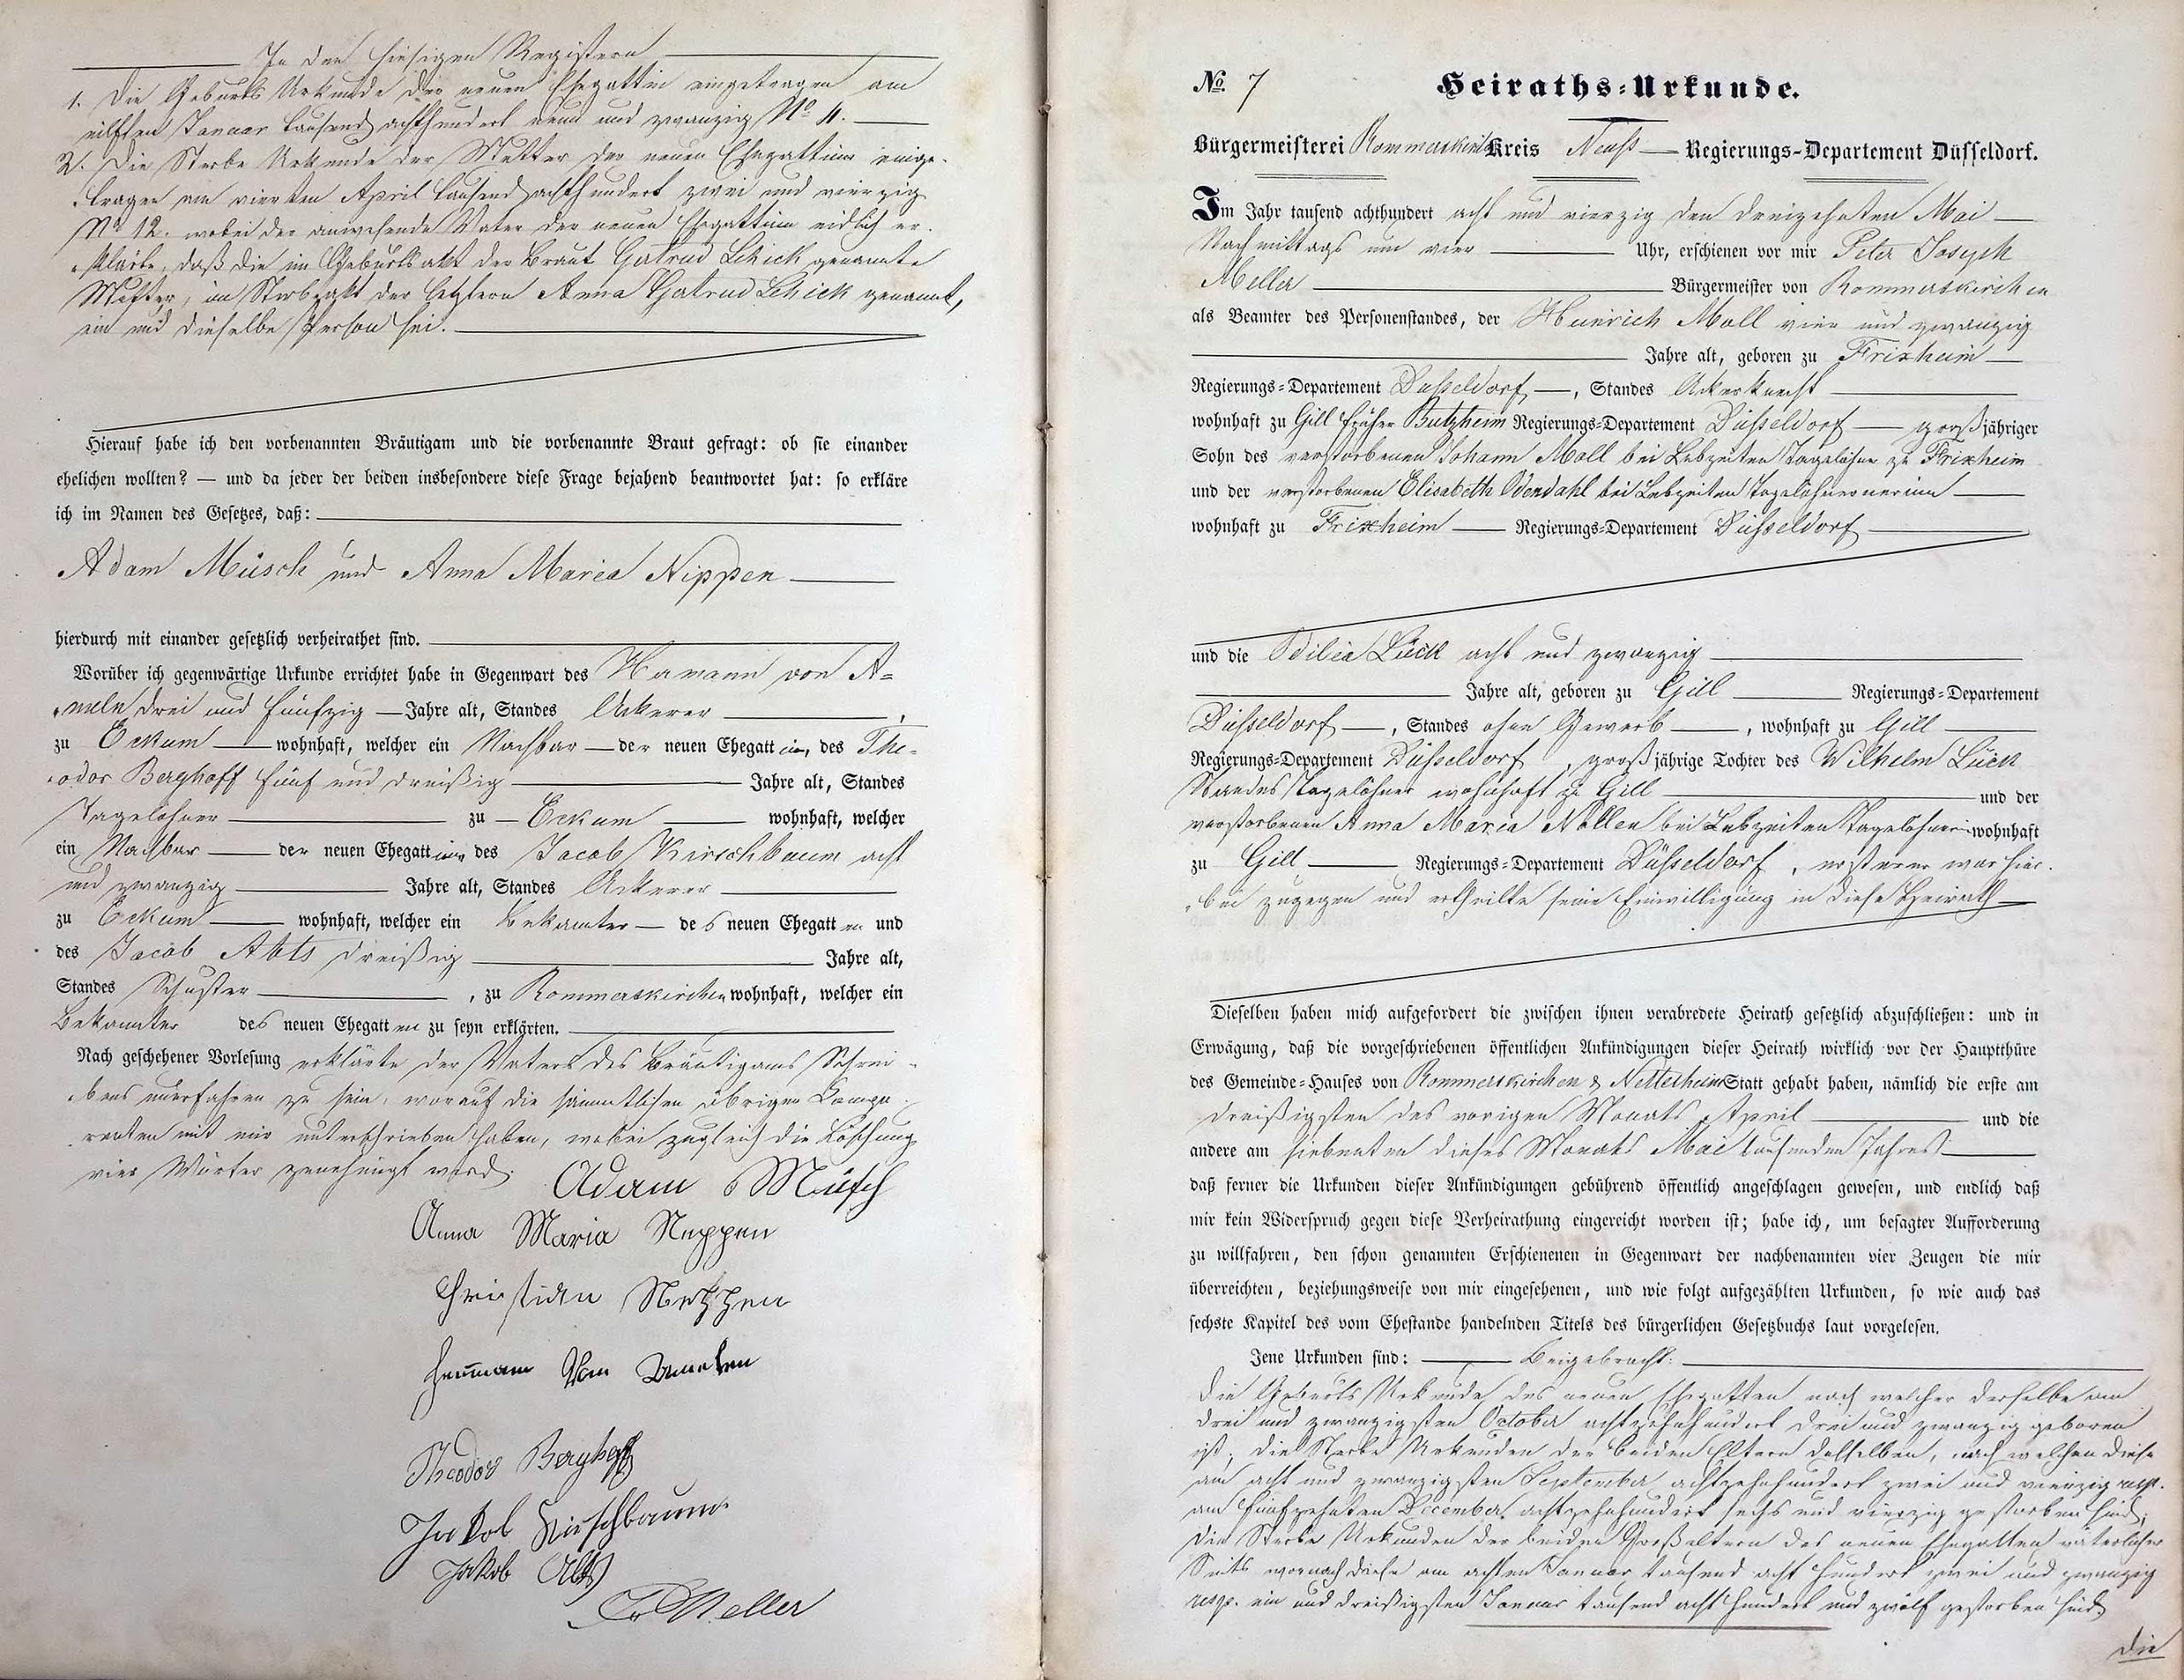 In den hiesigen Registern
1. Die Geburts Urkunde der neuen Ehegattin eingetragen am
eilften Januar tausend achthundert neun und zwanzig No 4.
2. Die Sterbe Urkunde der Mutter der neuen Ehegattinn einge-
tragen am vierten April tausend achthundert zwei und vierzig
No 12. wobei der anwesende Vater der neuen Ehegattinn eidlich er-
klärte, daß die im Geburtsakt der Braut Gertrud Schick genannte
Mutter, im Sterbeakt der letztern Anna Gertrud Schick genannt,
ein und dieselbe Person sei.
Hierauf habe ich den vorbenannten Bräutigam und die vorbenannte Braut gefragt: ob sie einander
ehelichen wollten? — und da jeder der beiden insbesondere diese Frage bejahend beantwortet hat: so erkläre
ich im Namen des Gesetzes, daß:
Adam Müsch und Anna Maria Nippen
hierdurch mit einander gesetzlich verheirathet sind.
Worüber ich gegenwärtige Urkunde errichtet habe in Gegenwart des Hermann von A-
meln drei und fünfzig Jahre alt, Standes Ackerer,
zu Eckum wohnhaft, welcher ein Nachbar der neuen Ehegattin, des The-
odor Berghoff fünf und dreißig Jahre alt, Standes
Tagelöhner zu Eckum wohnhaft, welcher
ein Nachbar der neuen Ehegattin, des Jacob Kirschbaum acht
und zwanzig Jahre alt, Standes Ackerer
zu Eckum wohnhaft, welcher ein Bekannter des neuen Ehegatten und
des Jacob Abts dreißig Jahre alt,
Standes Schuster, zu Rommerskirchen wohnhaft, welcher ein
Bekannter des neuen Ehegatten zu seyn erklärten.
Nach geschehener Vorlesung erklärte der Vater des Bräutigams Schrei-
bens unerfahren zu sein, worauf die sämmtlichen übrigen Compa-
renten mit mir unterschrieben haben, wobei zugleich die Löschung
vier Wörter genehmigt ward.
Adam Müsch
Anna Maria Neppen
Christian Neppen
Hermann Von Amelen
Theodor Berghoff
Jakob Kirschbaum
Jakob Abts
Meller
No. 7 Heiraths-Urkunde.
Bürgermeisterei Rommerskirchen Kreis Neuß Regierungs-Departement Düsseldorf.
Im Jahr tausend achthundert acht und vierzig den dreizehnten Mai
Nachmittags um vier Uhr, erschienen vor mir Peter Joseph
Meller Bürgermeister von Rommerskirchen
als Beamter des Personenstandes, der Heinrich Moll vier und zwanzig
Jahre alt, geboren zu Frixheim
Regierungs-Departement Düsseldorf, Standes Ackerknecht
wohnhaft zu Gill früher Butzheim Regierungs-Departement Düsseldorf großjähriger
Sohn des verstorbenen Johann Moll bei Lebzeiten Tagelöhner zu Frixheim
und der verstorbenen Elisabeth Odendahl bei Lebzeiten Tagelöhnerinn
wohnhaft zu Frixheim Regierungs-Departement Düsseldorf
und die Odilia Lück acht und zwanzig
Jahre alt, geboren zu Gill Regierungs-Departement
Düsseldorf, Standes ohne Gewerb, wohnhaft zu Gill
Regierungs-Departement Düsseldorf, großjährige Tochter des Wilhelm Lück
Standes Tagelöhner wohnhaft zu Gill und der
verstorbenen Anna Maria Nöllen bei Lebzeiten Tagelöhnerin wohnhaft
zu Gill Regierungs-Departement Düsseldorf, ersterer war hier-
bei zugegen und ertheilte seine Einwilligung in diese Heirath
Dieselben haben mich aufgefordert die zwischen ihnen verabredete Heirath gesetzlich abzuschließen: und in
Erwägung, daß die vorgeschriebenen öffentlichen Ankündigungen dieser Heirath wirklich vor der Hauptthüre
des Gemeinde-Hauses von Rommerskirchen & Nettesheim Statt gehabt haben, nämlich die erste am
dreißigsten des vorigen Monats April und die
andere am siebenten dieses Monats Mai laufenden Jahres
daß ferner die Urkunden dieser Ankündigungen gebührend öffentlich angeschlagen gewesen, und endlich daß
mir kein Widerspruch gegen diese Verheirathung eingereicht worden ist; habe ich, um besagter Aufforderung
zu willfahren, den schon genannten Erschienenen in Gegenwart der nachbenannten vier Zeugen die mir
überreichten, beziehungsweise von mir eingesehenen, und wie folgt aufgezählten Urkunden, so wie auch das
sechste Kapitel des vom Ehestande handelnden Titels des bürgerlichen Gesetzbuchs laut vorgelesen.
Jene Urkunden sind: Beigebracht:
Die Geburts Urkunde des neuen Ehegatten nach welcher derselbe am
drei und zwanzigsten October achtzehnhundert drei und zwanzig geboren
ist, die Sterbe Urkunden der beiden Eltern desselben, nach welchen diese
am acht und zwanzigsten September achtzehnhundert zwei und vierzig resp.
am fünfzehnten December achtzehnhundert sechs und vierzig gestorben sind,
die Sterbe Urkunden der beiden Großeltern des neuen Ehegatten väterlicher
Seits wornach diese am achten Januar tausend acht hundert zwei und zwanzig
resp. ein und dreißigsten Januar tausend acht hundert und zwölf gestorben sind,
die